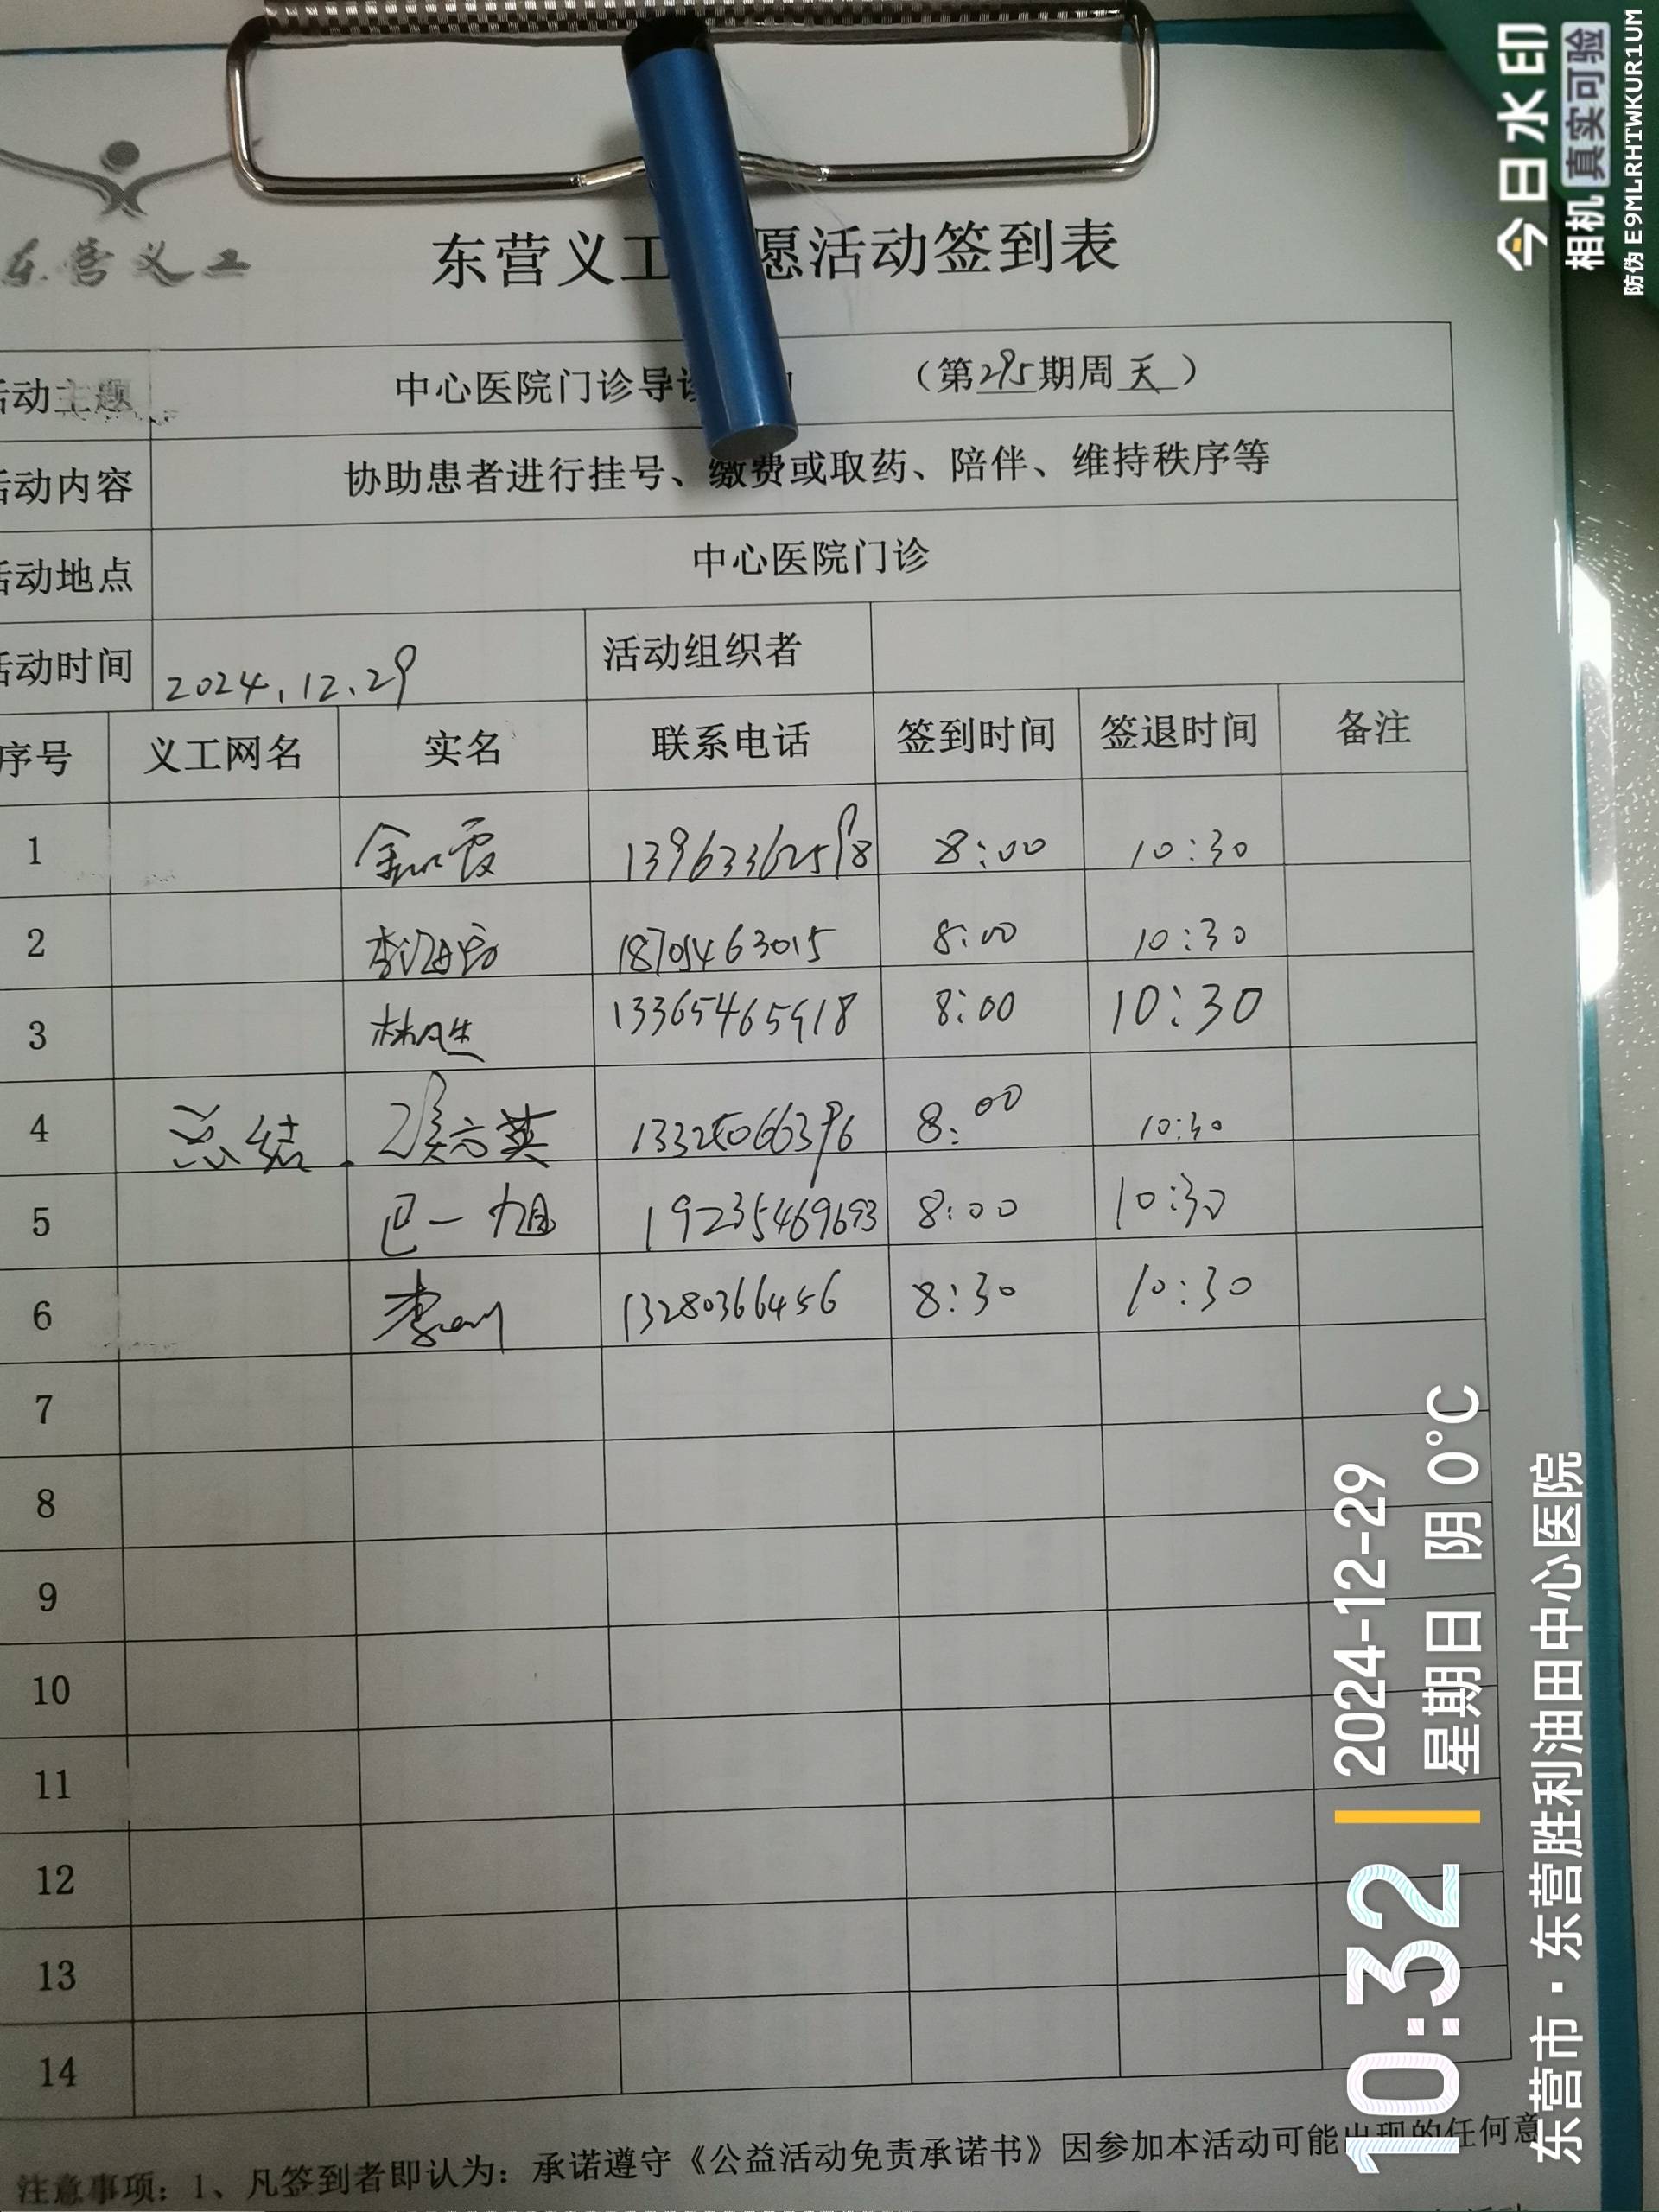 东营义工
东营义工 愿活动签到表
活动主题 中心医院门诊导 （第295期周天）
活动内容 协助患者进行挂号、缴费或取药、陪伴、维持秩序等
活动地点 中心医院门诊
活动时间 2024.12.29 活动组织者
序号 义工网名 实名 联系电话 签到时间 签退时间 备注
1 13963362598 8:00 10:30
2 8:00 10:30
3 13365465918 8:00 10:30
4 总结 8:00 10:30
5 巴一旭 19235469693 8:00 10:30
6 13280366456 8:30 10:30
7
8
9
10
11
12
13
14
注意事项：1、凡签到者即认为：承诺遵守《公益活动免责承诺书》因参加本活动可能出现的任何意
今日水印
相机 真实可验
防伪 E9MLRHTWKUR1UM
10:32
2024-12-29
星期日 阴 0°C
东营市·东营胜利油田中心医院